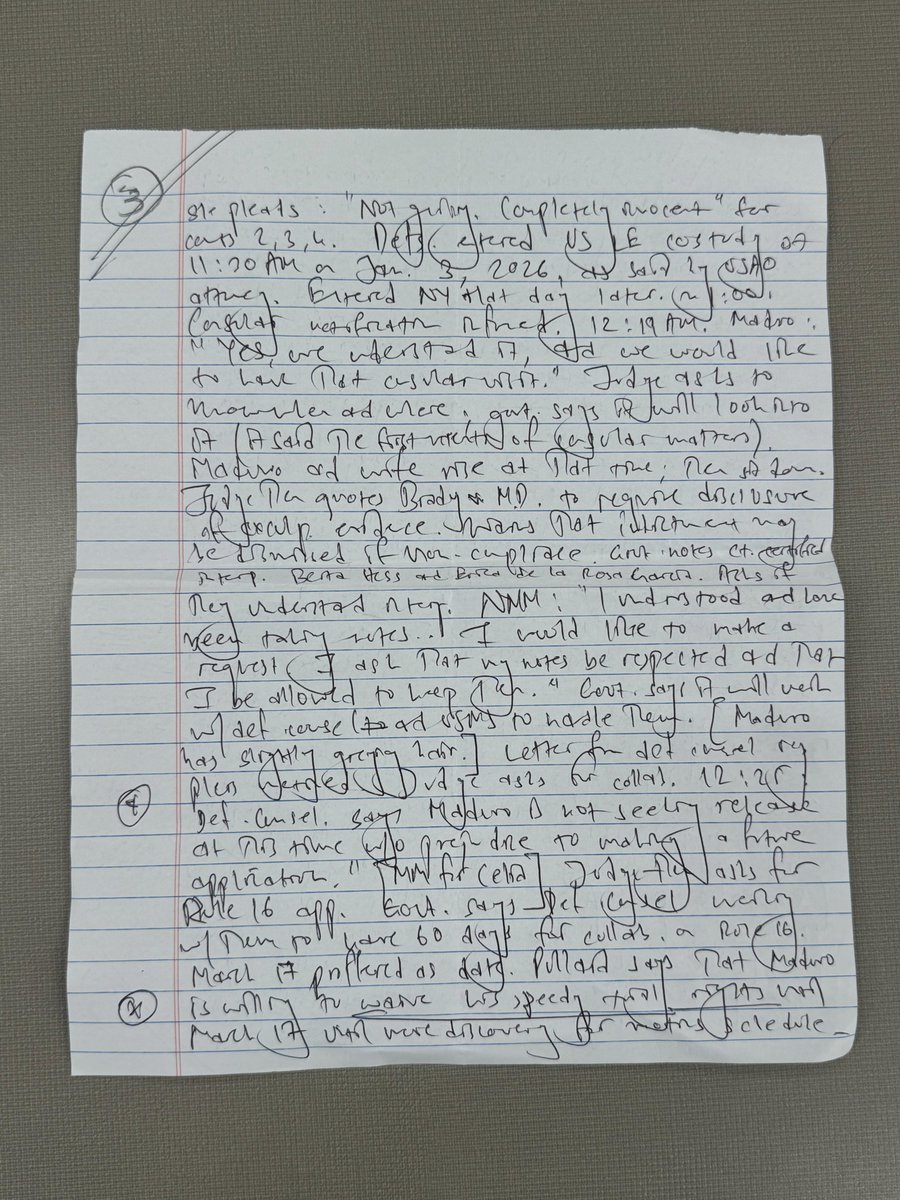 3
she pleads: "Not guilty. Completely innocent" for
counts 2, 3, 4. Defs. entered US LE custody at
11:30 AM on Jan. 3, 2026, as said by USAO
attorney. Entered NY that day later.
Consular notification refused. 12:19 AM. Maduro:
"Yes, we understand it, and we would like
to have that consular visit." Judge asks to
know when and where; govt. says it will look into
it (it said the first mention of consular matters).
Maduro and wife rise at that time; then sit down.
Judge then quotes Brady v MD. to require disclosure
of exculp. evidence. Warns that indictment may
be dismissed if non-compliance. Govt. notes ct. certified
interp. Berta Hess and Erica de la Rosa Garcia. Asks if
they understand interp. NMM: "I understood and have
been taking notes... I would like to make a
request. I ask that my notes be respected and that
I be allowed to keep them." Govt. says it will work
w/ def counsel and USMS to handle them. [Maduro
has slightly greying hair.] Letter from def counsel re
plan. Judge asks for collab. 12:25:
Def. Counsel. says Maduro is not seeking release
at this time w/o prejudice to making a future
application." Judge then asks for
Rule 16 app. Govt. says def counsel working
w/ them to have 60 days for collab. on Rule 16.
March 17 proffered as date. Pollard says that Maduro
is willing to waive his speedy trial rights until
March 17 until more discovery for motion schedule